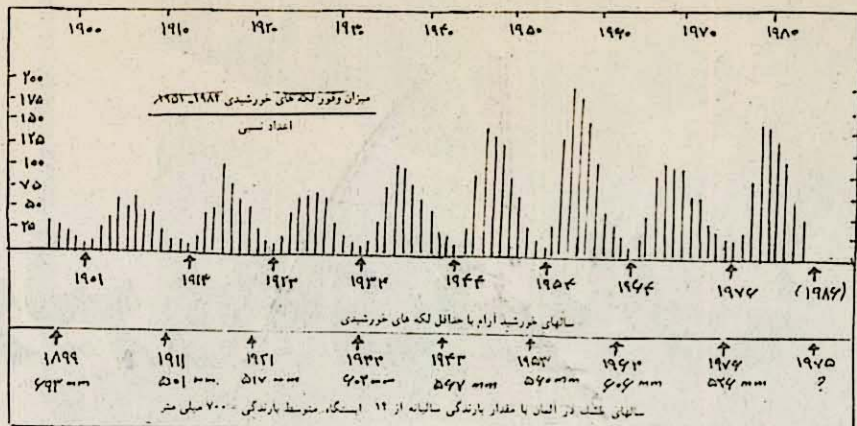 ۱۹۰۰ ۱۹۱۰ ۱۹۲۰ ۱۹۳۰ ۱۹۴۰ ۱۹۵۰ ۱۹۶۰ ۱۹۷۰ ۱۹۸۰
۲۰۰
۱۷۵
۱۵۰
۱۲۵
۱۰۰
۷۵
۵۰
۲۵
میزان وفور لکه های خورشیدی
اعداد نسبی
۱۹۰۱ ۱۹۲۳ ۱۹۴۴ ۱۹۵۴ ۱۹۶۴ ۱۹۷۶ (۱۹۸۶)
سالهای خورشید آرام با حداقل لکه های خورشیدی
۱۸۹۹ ۱۹۱۱ ۱۹۲۱ ۱۹۴۳ ۱۹۵۳ ۱۹۶۳ ۱۹۷۶ ۱۹۷۵
۶۹۳ mm ۵۰۱ mm ۵۱۷ mm ۶۰۲ mm ۵۶۷ mm ۵۶۰ mm ۶۰۶ mm ۵۲۶ mm ?
سالهای خشک در آلمان با مقدار بارندگی سالیانه از ۱۲ ایستگاه متوسط بارندگی ۷۰۰ میلی متر